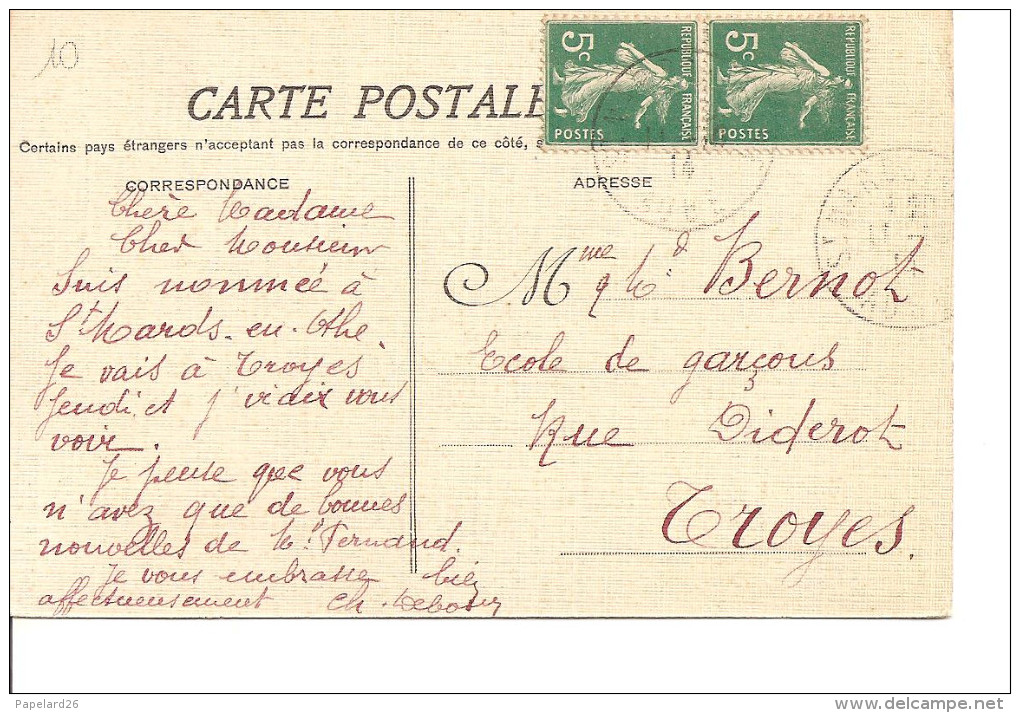 10
CARTE POSTALE
Certains pays étrangers n'acceptant pas la correspondance de ce côté, s
CORRESPONDANCE
Chère Madame
Cher Monsieur
Suis nommée à
St Mards-en-Othe.
Je vais à Troyes
Jeudi, et j'irai vous
voir.
Je pense que vous
n'avez que de bonnes
nouvelles de Mr Fernand.
Je vous embrasse bien
affectueusement Ch.
ADRESSE
Mme & Mr Bernot
Ecole de garçons
Rue Diderot
Troyes.
5c REPUBLIQUE FRANÇAISE POSTES
5c REPUBLIQUE FRANÇAISE POSTES
14
AUBE
Papelard26
www.delcampe.net